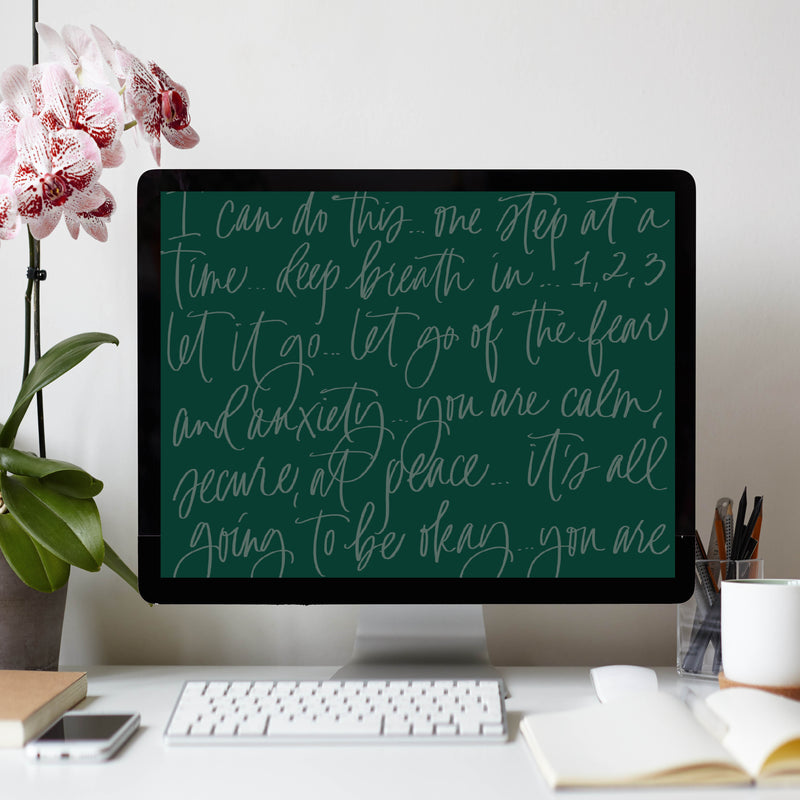 I can do this... one step at a
time... deep breath in... 1, 2, 3
let it go... let go of the fear
and anxiety... you are calm,
secure, at peace... it's all
going to be okay... you are